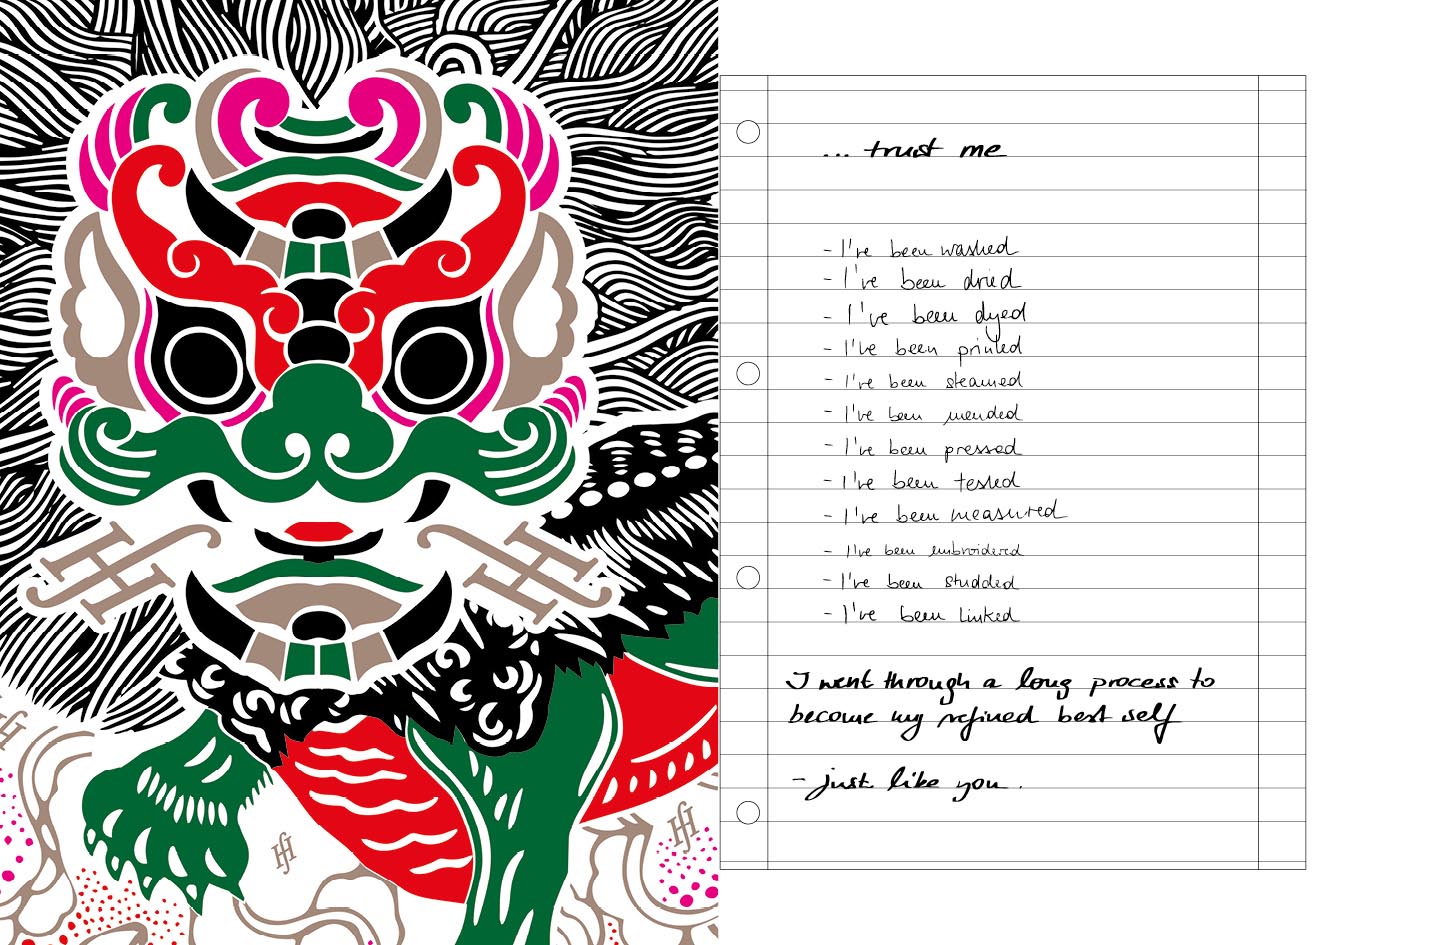 ... trust me
- I've been washed
- I've been dried
- I've been dyed
- I've been printed
- I've been steamed
- I've been mended
- I've been pressed
- I've been tested
- I've been measured
- I've been embroidered
- I've been studded
- I've been linked
I went through a long process to
become my refined best self
- just like you.